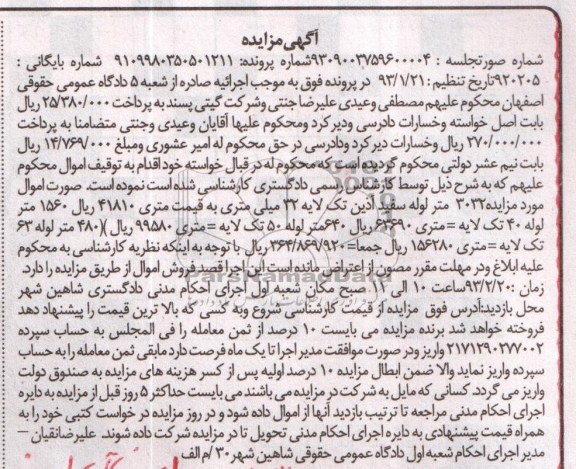 آگهی مزایده
شماره صورتجلسه : ۹۳۰۹۰۰۳۷۵۹۶۰۰۰۰۴شماره پرونده: ۹۱۰۹۹۸۰۳۵۰۵۰۱۲۱۱ شماره بایگانی :
۹۲۰۲۰۵تاریخ تنظیم : ۹۳/۱/۲۱ در پرونده فوق به موجب اجرائیه صادره از شعبه ۵ دادگاه عمومی حقوقی
اصفهان محکوم علیهم مصطفی وعیدی علیرضا جنتی وشرکت گیتی پسند به پرداخت ۲۵/۳۸۰/۰۰۰ ریال
بابت اصل خواسته وخسارات دادرسی ودیر کرد ومحکوم علیها آقایان وعیدی وجنتی متضامنا به پرداخت
۲۷۰/۰۰۰/۰۰۰ ریال وخسارات دیر کرد ودادرسی در حق محکوم له امیر عشوری ومبلغ ۱۴/۷۶۹/۰۰۰ ریال
بابت نیم عشر دولتی محکوم گردیده اند که محکوم له در قبال خواسته خود اقدام به توقیف اموال محکوم
علیهم که به شرح ذیل توسط کارشناس رسمی دادگستری کارشناسی شده است نموده است. صورت اموال
مورد مزایده۳۰۳۲ متر لوله سفید آذین تک لایه ۳۲ میلی متری به قیمت متری ۴۱۸۱۰ ریال ۱۵۶۰ متر
لوله ۴۰ تک لایه =متری ۶۳۶۹۰ریال ۶۴۰متر لوله ۵۰ تک لایه =متری ۹۹۵۸۰ ریال )(۴۸۰ متر لوله ۶۳
تک لایه =متری ۱۵۶۲۸۰ ریال جمعا=۳۶۴/۸۶۹/۹۲۰ ریال با توجه به اینکه نظریه کارشناسی به محکوم
علیه ابلاغ ودر مهلت مقرر مصون از اعتراض مانده است این اجرا قصد فروش اموال از طریق مزایده را دارد.
زمان :۹۳/۲/۲۰ساعت ۱۰ الی ۱۲ صبح مکان شعبه اول اجرای احکام مدنی دادگستری شاهین شهر
محل بازدید:آدرس فوق مزایده از قیمت کارشناسی شروع وبه کسی که بالا ترین قیمت را پیشنهاد دهد
فروخته خواهد شد برنده مزایده می بایست ۱۰ درصد از ثمن معامله را فی المجلس به حساب سپرده
۲۱۷۱۲۹۰۲۷۷۰۰۲ واریز ودر صورت موافقت مدیر اجرا تا یک ماه فرصت دارد مابقی ثمن معامله را به حساب
سپرده واریز نماید والا ضمن ابطال مزایده ۱۰ درصد اولیه پس از کسر هزینه های مزایده به صندوق دولت
واریز می گردد. کسانی که مایل به شرکت در مزایده می باشند می بایست حداکثر ۵ روز قبل از مزایده به دایره
اجرای احکام مدنی مراجعه تا ترتیب بازدید آنها از اموال داده شود و در روز مزایده در خواست کتبی خود را به
همراه قیمت پیشنهادی به دایره اجرای احکام مدنی تحویل تا در مزایده شرکت داده شوند. علیرضانقیان –
مدیر اجرای احکام شعبه اول دادگاه عمومی حقوقی شاهین شهر ۳۰ /م الف